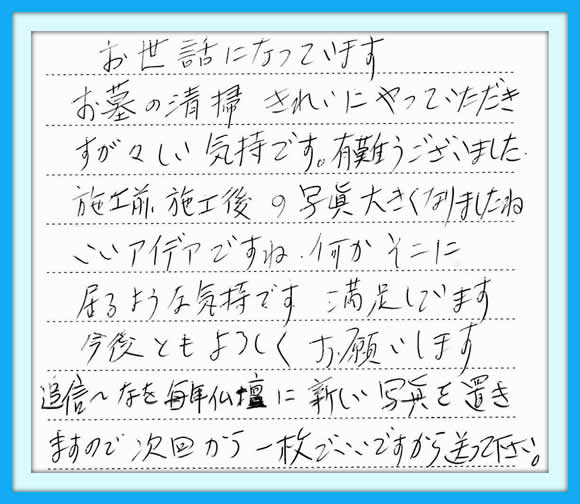 お世話になっています
お墓の清掃 きれいにやっていただき
すが々しい気持です。有難うございました.
施工前、施工後の写真大きくなりましたね
いいアイデアですね.何かそこに
居るような気持です 満足しています
今後ともよろしくお願いします
追信〜なを毎年仏壇に新しい写真を置き
ますので次回から一枚でいいですから送って下さい。